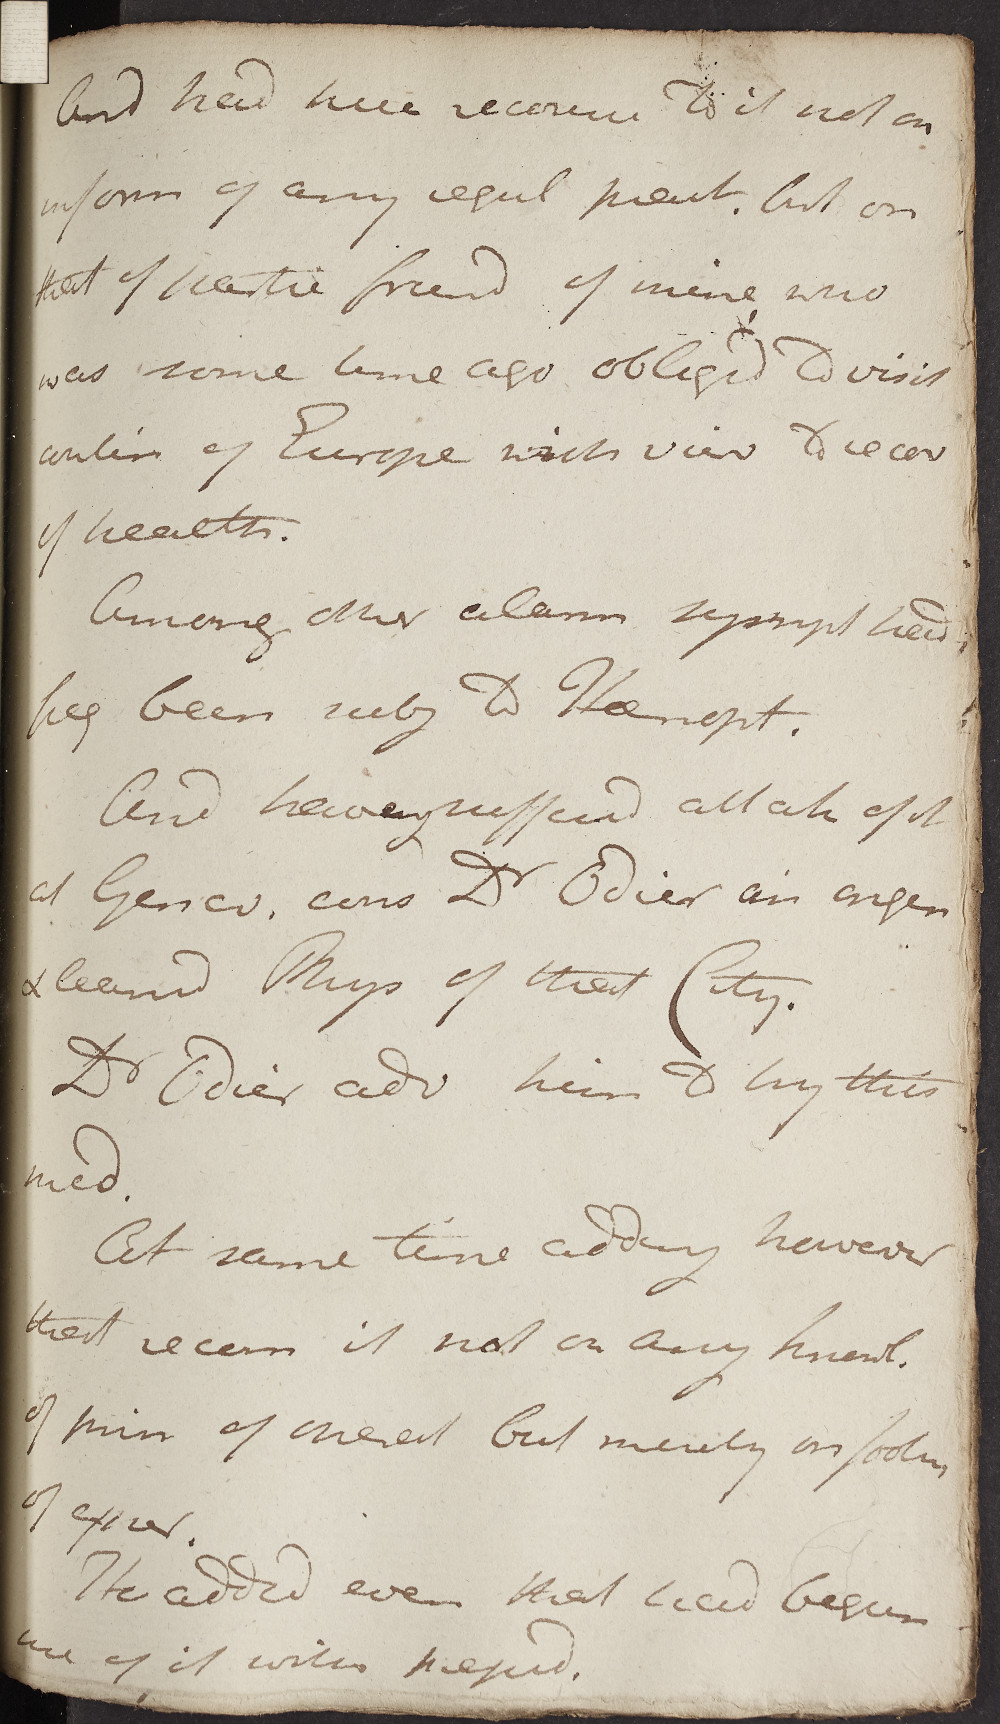 And had here recourse to it not on
inform of any regul pract. but on
that of partic friend of mine who
was some time ago obliged to visit
contin of Europe with view to recov
of health.
Among other alarm sympt had
freq been subj to Hæmopt.
And having suffered attak of it
at Genev. cons Dr Odier an ingen
& learnd Phys of that City.
Dr Odier adv him to try this
med.
At same time adding however
that recom it not on any knowl.
of prin of operat but merely on footin
of exper.
He added even that had begun
use of it with prejud.